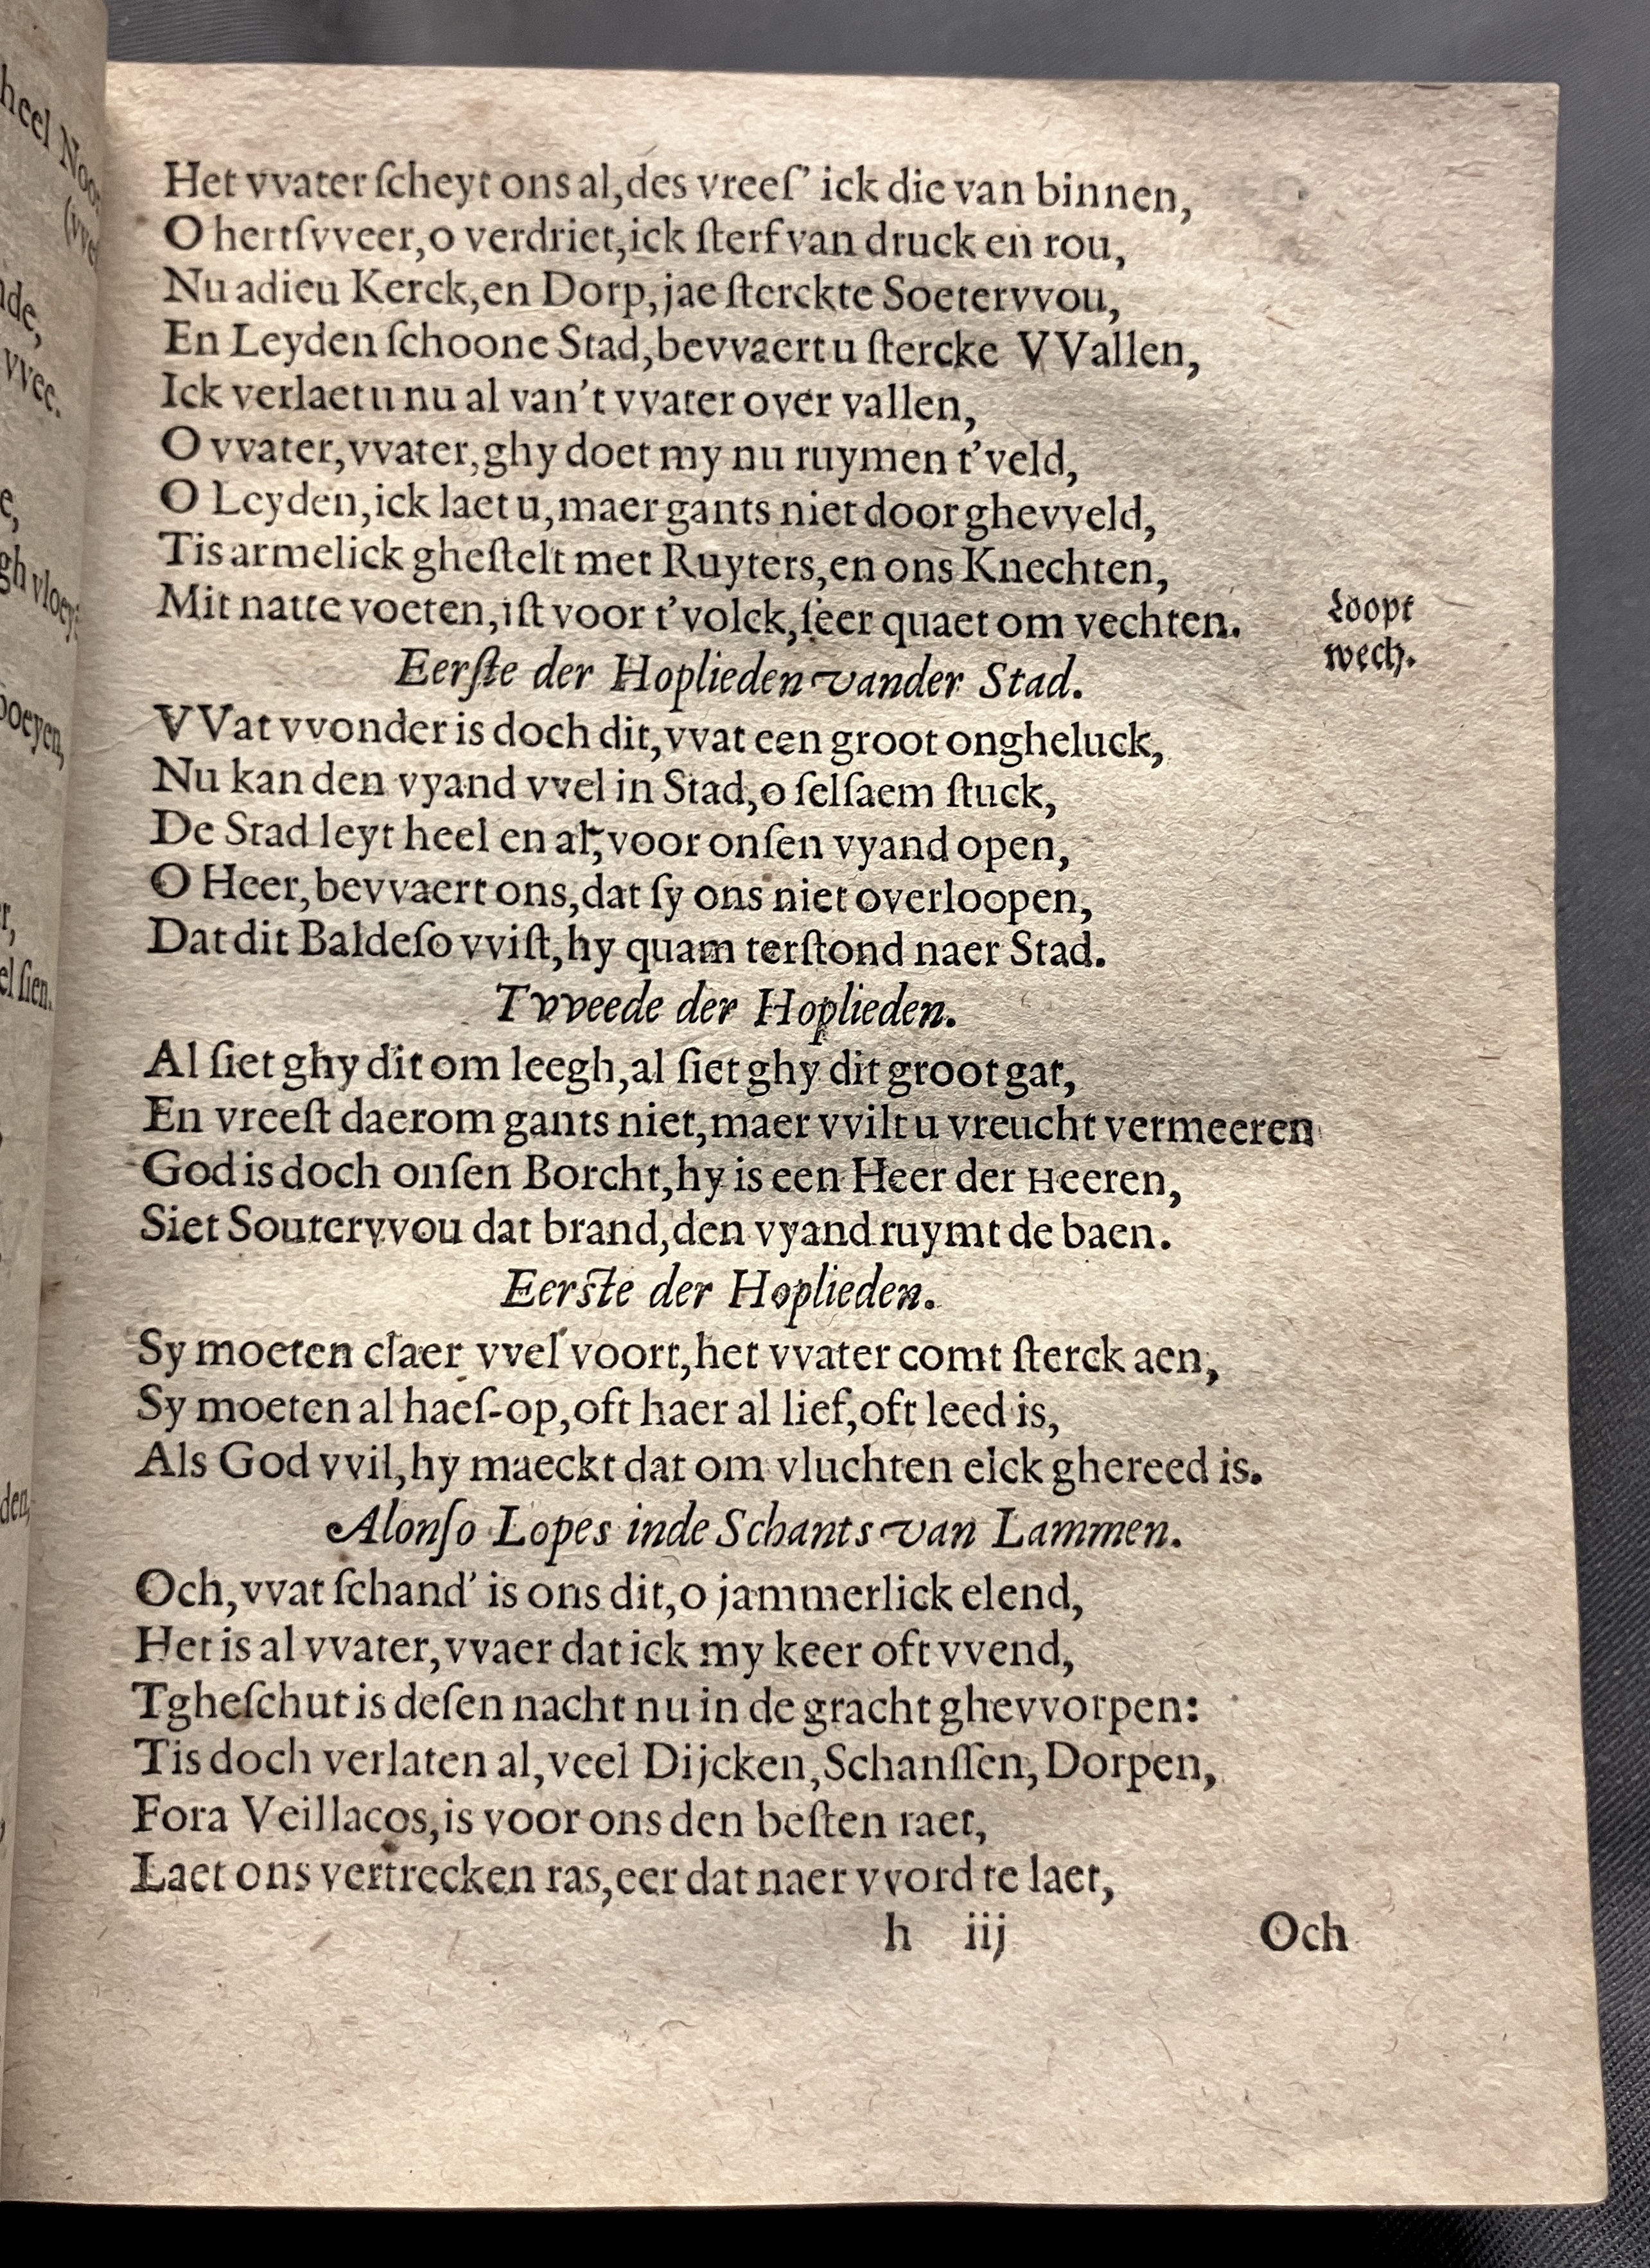 Het vvater ſcheyt ons al, des vreeſ’ ick die van binnen,
O hertſvveer, o verdriet, ick ſterf van druck en rou,
Nu adieu Kerck, en Dorp, jae ſterckte Soetervvou,
En Leyden ſchoone Stad, bevvaert u ſtercke VVallen,
Ick verlaet u nu al van’t vvater over vallen,
O vvater, vvater, ghy doet my nu ruymen t’veld,
O Leyden, ick laet u, maer gants niet door ghevveld,
Tis armelick gheſtelt met Ruyters, en ons Knechten,
Mit natte voeten, iſt voor t’volck, ſeer quaet om vechten.
Loopt
wech.
Eerſte der Hoplieden vander Stad.
VVat vvonder is doch dit, vvat een groot ongheluck,
Nu kan den vyand vvel in Stad, o ſelſaem ſtuck,
De Stad leyt heel en al, voor onſen vyand open,
O Heer, bevvaert ons, dat ſy ons niet overloopen,
Dat dit Baldeſo vviſt, hy quam terſtond naer Stad.
Tvveede der Hoplieden.
Al ſiet ghy dit om leegh, al ſiet ghy dit groot gat,
En vreeſt daerom gants niet, maer vvilt u vreucht vermeeren
God is doch onſen Borcht, hy is een Heer der Heeren,
Siet Soutervvou dat brand, den vyand ruymt de baen.
Eerſte der Hoplieden.
Sy moeten claer vvel voort, het vvater comt ſterck aen,
Sy moeten al haeſ-op, oft haer al lief, oft leed is,
Als God vvil, hy maeckt dat om vluchten elck ghereed is.
Alonſo Lopes inde Schants van Lammen.
Och, vvat ſchand’ is ons dit, o jammerlick elend,
Het is al vvater, vvaer dat ick my keer oft vvend,
Tgheſchut is deſen nacht nu in de gracht ghevvorpen:
Tis doch verlaten al, veel Dijcken, Schanſſen, Dorpen,
Fora Veillacos, is voor ons den beſten raet,
Laet ons vertrecken ras, eer dat naer vvord te laet,
h iij
Och